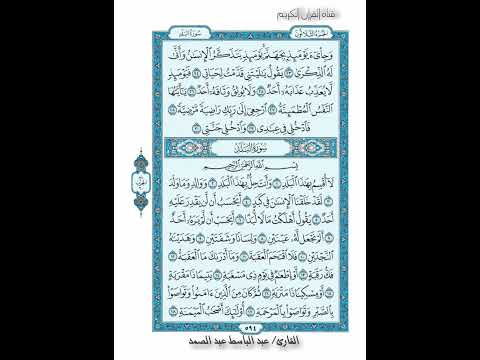 قناة القرآن الكريم
الجزء الثلاثون
سورة البلد
وَجِاْىٓءَ يَوْمَئِذِۭ بِجَهَنَّمَۚ يَوْمَئِذٍ يَتَذَكَّرُ ٱلْإِنسَٰنُ وَأَنَّىٰ
لَهُ ٱلذِّكْرَىٰ ٢٣ يَقُولُ يَٰلَيْتَنِى قَدَّمْتُ لِحَيَاتِى ٢٤ فَيَوْمَئِذٍ
لَّا يُعَذِّبُ عَذَابَهُۥٓ أَحَدٌ ٢٥ وَلَا يُوثِقُ وَثَاقَهُۥٓ أَحَدٌ ٢٦ يَٰٓأَيَّتُهَا
ٱلنَّفْسُ ٱلْمُطْمَئِنَّةُ ٢٧ ٱرْجِعِىٓ إِلَىٰ رَبِّكِ رَاضِيَةً مَّرْضِيَّةً ٢٨
فَٱدْخُلِى فِى عِبَٰدِى ٢٩ وَٱدْخُلِى جَنَّتِى ٣٠
سُورَةُ البَلَدِ
بِسْمِ ٱللَّهِ ٱلرَّحْمَٰنِ ٱلرَّحِيمِ
لَآ أُقْسِمُ بِهَٰذَا ٱلْبَلَدِ ١ وَأَنتَ حِلٌّۢ بِهَٰذَا ٱلْبَلَدِ ٢ وَوَالِدٍ وَمَا وَلَدَ
٣ لَقَدْ خَلَقْنَا ٱلْإِنسَٰنَ فِى كَبَدٍ ٤ أَيَحْسَبُ أَن لَّن يَقْدِرَ عَلَيْهِ
أَحَدٌ ٥ يَقُولُ أَهْلَكْتُ مَالًا لُّبَدًا ٦ أَيَحْسَبُ أَن لَّمْ يَرَهُۥٓ أَحَدٌ
٧ أَلَمْ نَجْعَل لَّهُۥ عَيْنَيْنِ ٨ وَلِسَانًا وَشَفَتَيْنِ ٩ وَهَدَيْنَٰهُ
ٱلنَّجْدَيْنِ ١٠ فَلَا ٱقْتَحَمَ ٱلْعَقَبَةَ ١١ وَمَآ أَدْرَىٰكَ مَا ٱلْعَقَبَةُ ١٢
فَكُّ رَقَبَةٍ ١٣ أَوْ إِطْعَٰمٌ فِى يَوْمٍ ذِى مَسْغَبَةٍ ١٤ يَتِيمًا ذَا مَقْرَبَةٍ
١٥ أَوْ مِسْكِينًا ذَا مَتْرَبَةٍ ١٦ ثُمَّ كَانَ مِنَ ٱلَّذِينَ ءَامَنُوا۟ وَتَوَاصَوْا۟
بِٱلصَّبْرِ وَتَوَاصَوْا۟ بِٱلْمَرْحَمَةِ ١٧ أُو۟لَٰٓئِكَ أَصْحَٰبُ ٱلْمَيْمَنَةِ ١٨
٥٩٤
القارئ/ عبد الباسط عبد الصمد